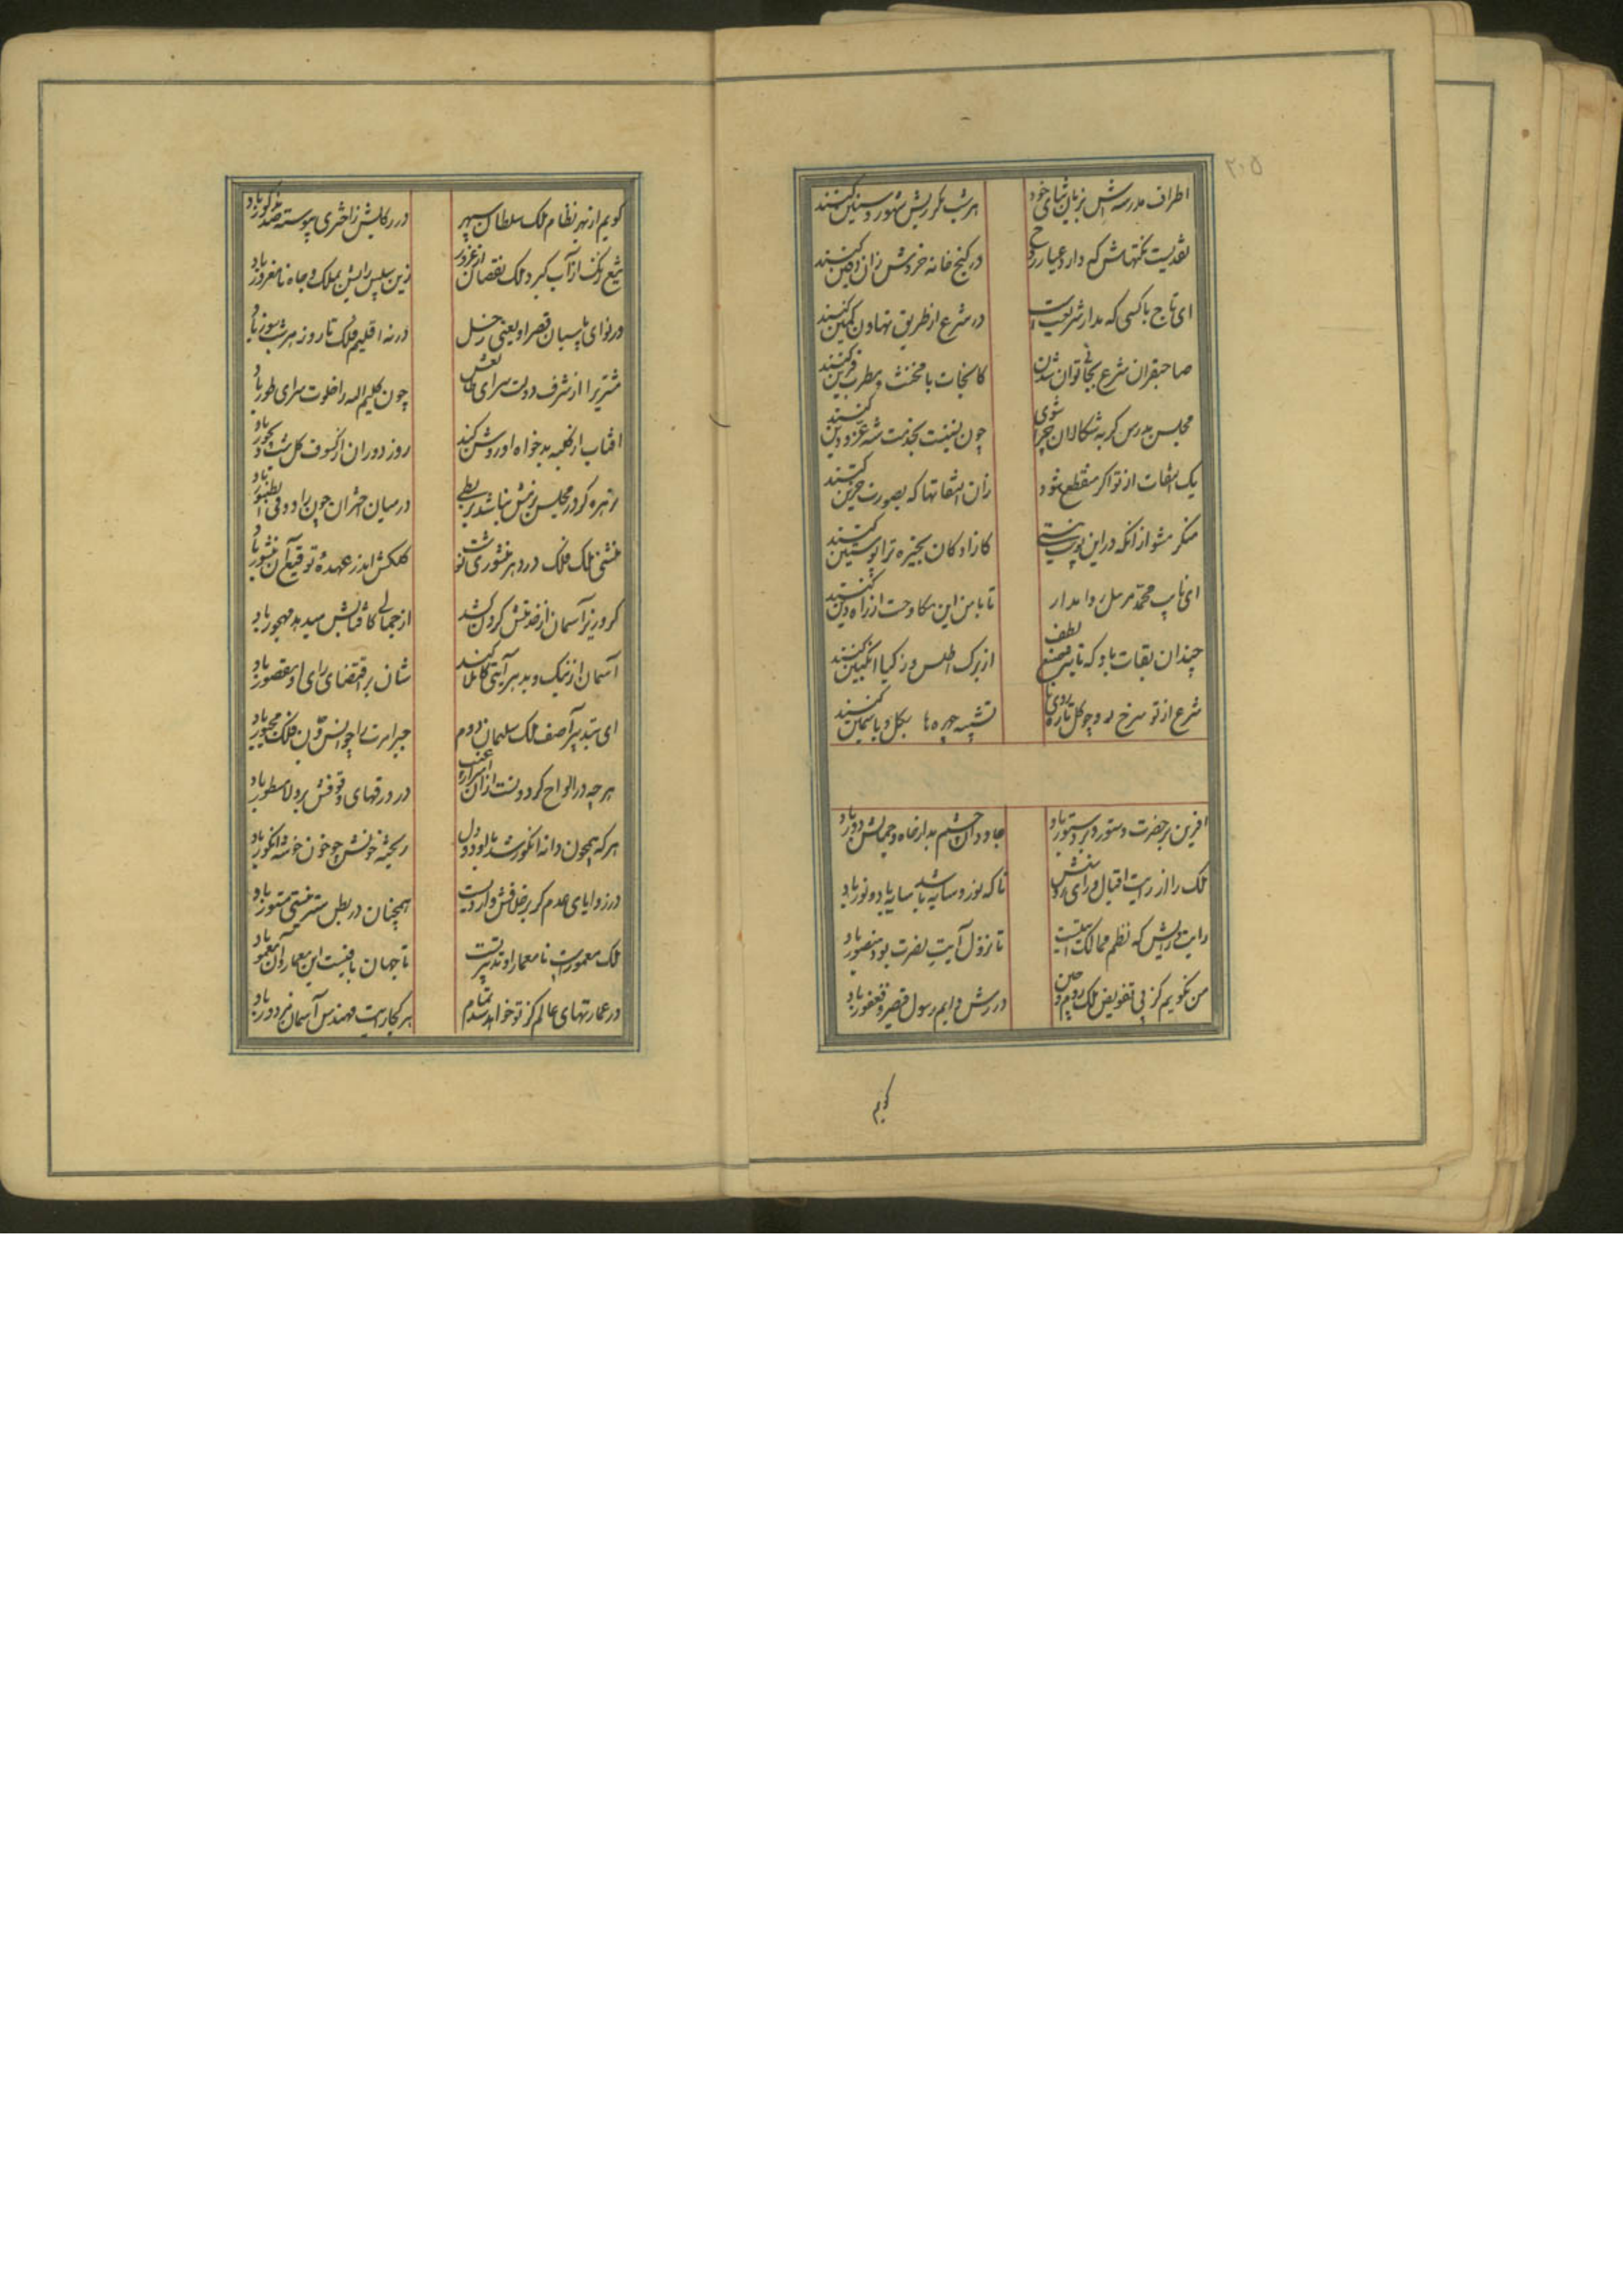 ۲۰۵
اطراف مدرسه‌اش بزبان ثنای خود
هر شب بگردیش شهور و سنین کنند
نقدیست نکتهاش که دارد عیار
در کنج خانه خردش زان دفین کنند
ای تاج باکسی که مدار شریعت است
در شرع از طریق تهاون کمین کنند
صاحبقران شرع بجائی توان شدن
کانجات با مخنث و مطرب قرین کنند
مجلس بدرس گربه شکالان چرا شوی
چون نسبتت بخدمت شه عز و دین کنند
یک التفات از تو اگر منقطع شود
زان التفاتها که بصورت حزین کنند
منکر مشو از آنکه در این پوستینستی
کازادکان بخیره ترا پوستین کنند
ای نایب محمد مرسل روا مدار
تا با من این مکاوحت از راه دین کنند
چندان بقات باد که تاثیر صنع لطف
از برک اطلس و ز کیا انگبین کنند
شرع از تو سرخ رو چو کل تازه روی تا
تشبیه چهره‌ها بکل و یاسمین کنند
آفرین بر حضرت دستور و بر دستور باد
جاودان چشم بد از جاه و جمالش دور باد
ملک را از رایت اقبال و رای روشنش
تا که نور و سایه باشد سایه باد و نور باد
رایت و رایش که نظم ممالک
تا نزول آیت نصرت بود منصور باد
من نکویم کز پی تفویض ملک روم و چین
در رش دایم رسول قیصر و فغفور باد
کویم
کویم از بهر نظام ملک سلطان سپهر
در رکابش ز اختری پیوسته صد کور باد
تیغ او کز آب کیرد ملک نقصان از غرور
زین سپس رایش بملک و جاه نا مغرور باد
در نوای پاسبان قصر او یعنی زحل
در نه اقلیم فلک تا روز هر شب سور باد
مشتری را از شرف دولت سرای طالعش
چون کلیم الله را خلوت سرای طور باد
آفتاب ار کلبه بدخواه او روشن کند
روز دوران از کسوف کل شب دیجور باد
زهره کر در مجلس بزمش نباشد بربطی
در میان اختران چون زاد فی الطنبور باد
منشی ملک فلک در هر منشوری نوشت
کلکش اندر عهده توقیع آن منشور باد
کر وزیر آسمان از خدمتش کردن کشد
از جمالی کافتابش میدهد مهجور باد
آسمان از نیک و بد هر آیتی کاملا کند
شان بر اقتضای رای او مقصور باد
ای بتدبیر آصف ملک سلیمان دوم
جبر امرت را چو انس و جن فلک مجبور باد
هرچه در الواح کردونست از اسرار غیب
در ورقهای وقوفش بر ولا مسطور باد
هرکه همچون دانه انکور شد با او دو دل
ریخته خونش چو خون خوشه انکور باد
در زوایای عدم کر بر خلافش واردیست
همچنان در بطل ستر نیستی مستور باد
ملک معمورست تا معمار او تدبیر تست
تا جهان باقیست این معمار و آن معمور باد
در عمارتهای عالم کز تو خواهد شد تمام
هر کجا رایت مهندس آسمان مزدور باد